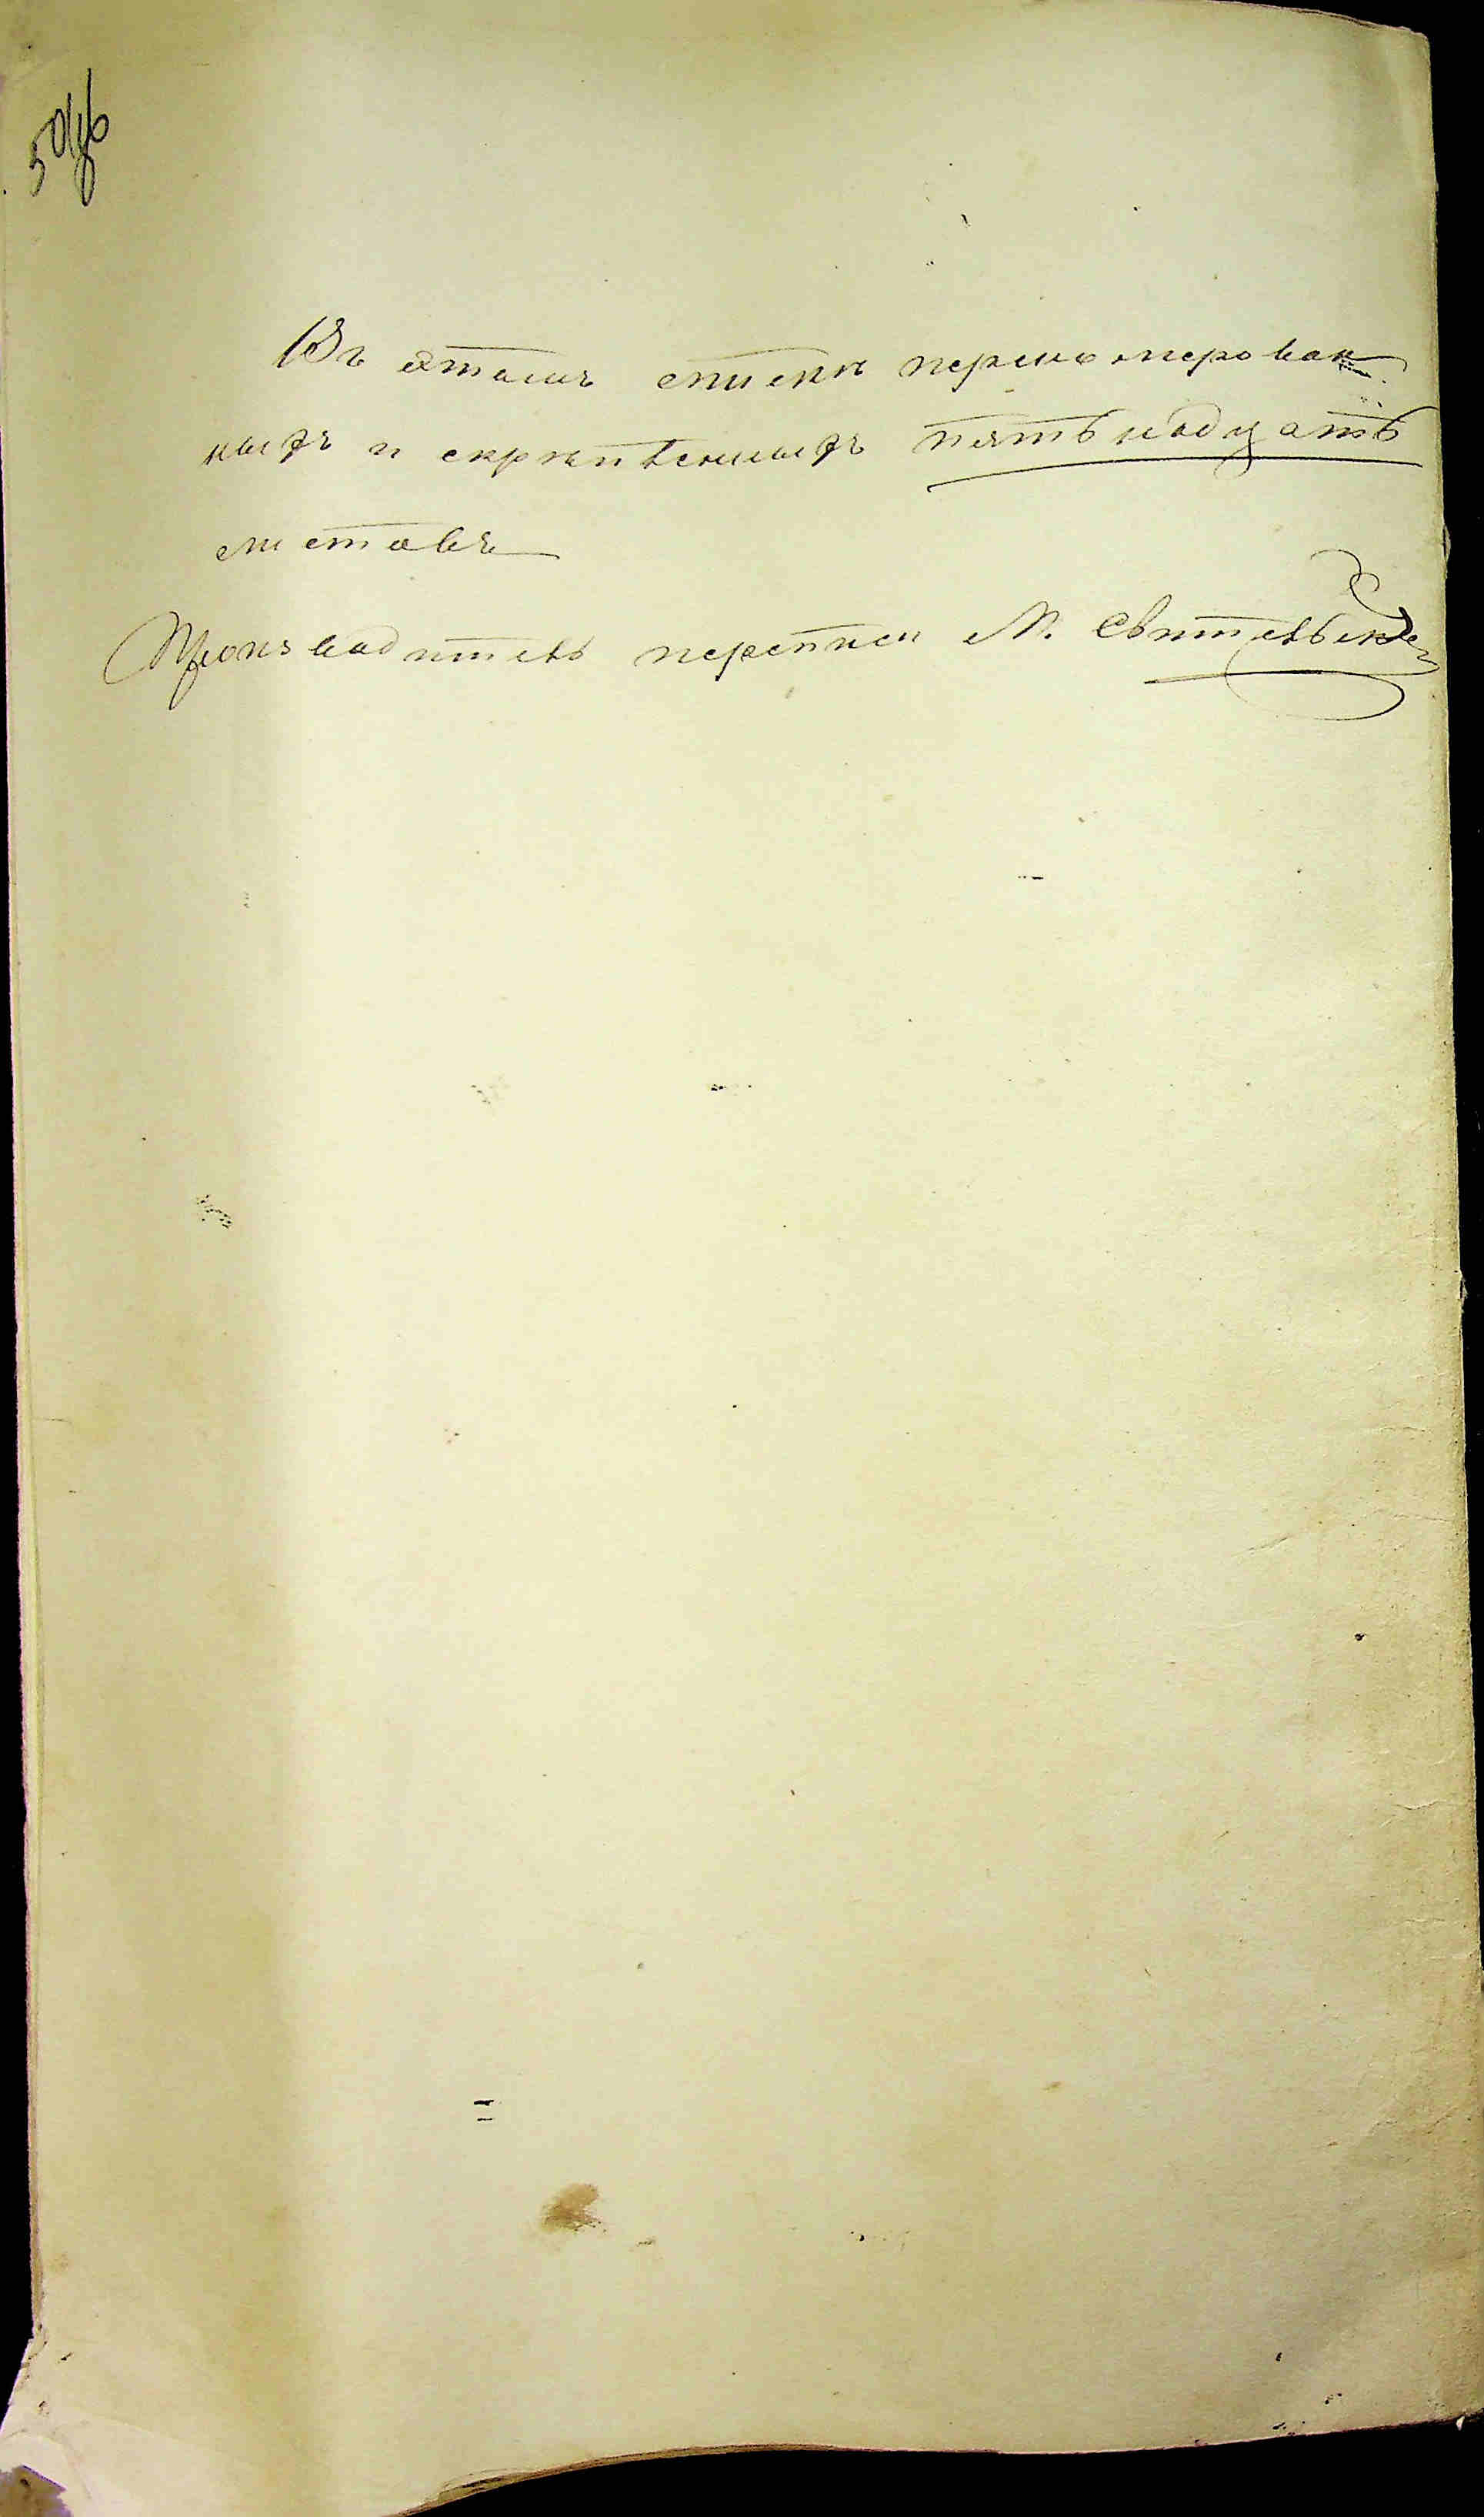 50об
Въ этомъ спискѣ перенумерован
ныхъ и скрѣпленныхъ пятьнадцать
листовъ
Производитель переписи М.